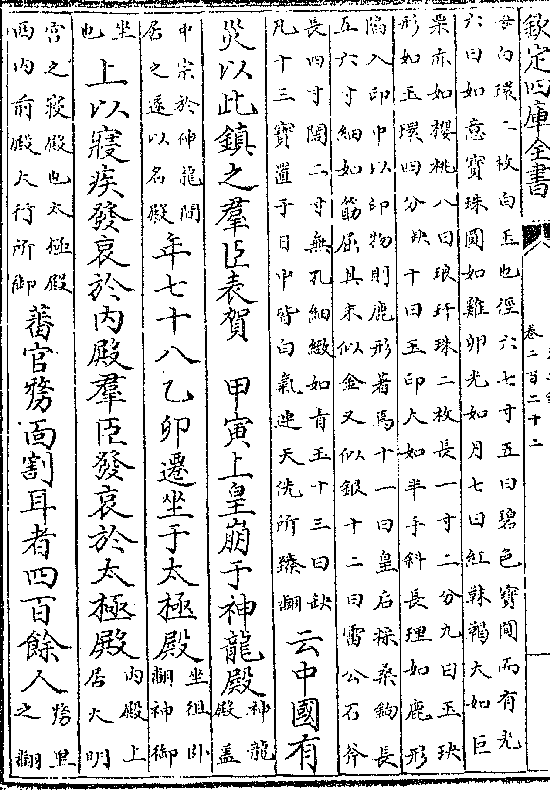 欽定四庫全書
卷二百二十二
母白環二枚白玉也徑六七寸五曰碧色寶圓而有光
六曰如意寶珠圓如雞卵光如月七曰紅靺鞨大如巨
栗亦如櫻桃八曰琅玕珠二枚長一寸二分九曰玉玦
形如玉環四分缺十曰玉印大如半手斜長理如鹿形
陷入印中以印物則鹿形著焉十一曰皇后採桑鈎長
五六寸細如筋屈其末似金又似銀十二曰雷公石斧
長四寸闊二寸無孔細緻如青玉十三曰缺
凡十三寶置于日中皆白氣連天侊所臻翻
云中國有
災以此鎮之羣臣表賀 甲寅上皇崩于神龍殿
神龍
殿蓋
中宗於神龍間
居之遂以名殿
年七十八乙卯遷坐于太極殿
坐徂卧
翻神御
坐
也
上以寢疾發哀於内殿羣臣發哀於太極殿
内殿上
居大明
宮之寢殿也太極殿
西内前殿大行所御
蕃官剺面割耳者四百餘人
剺里
之翻